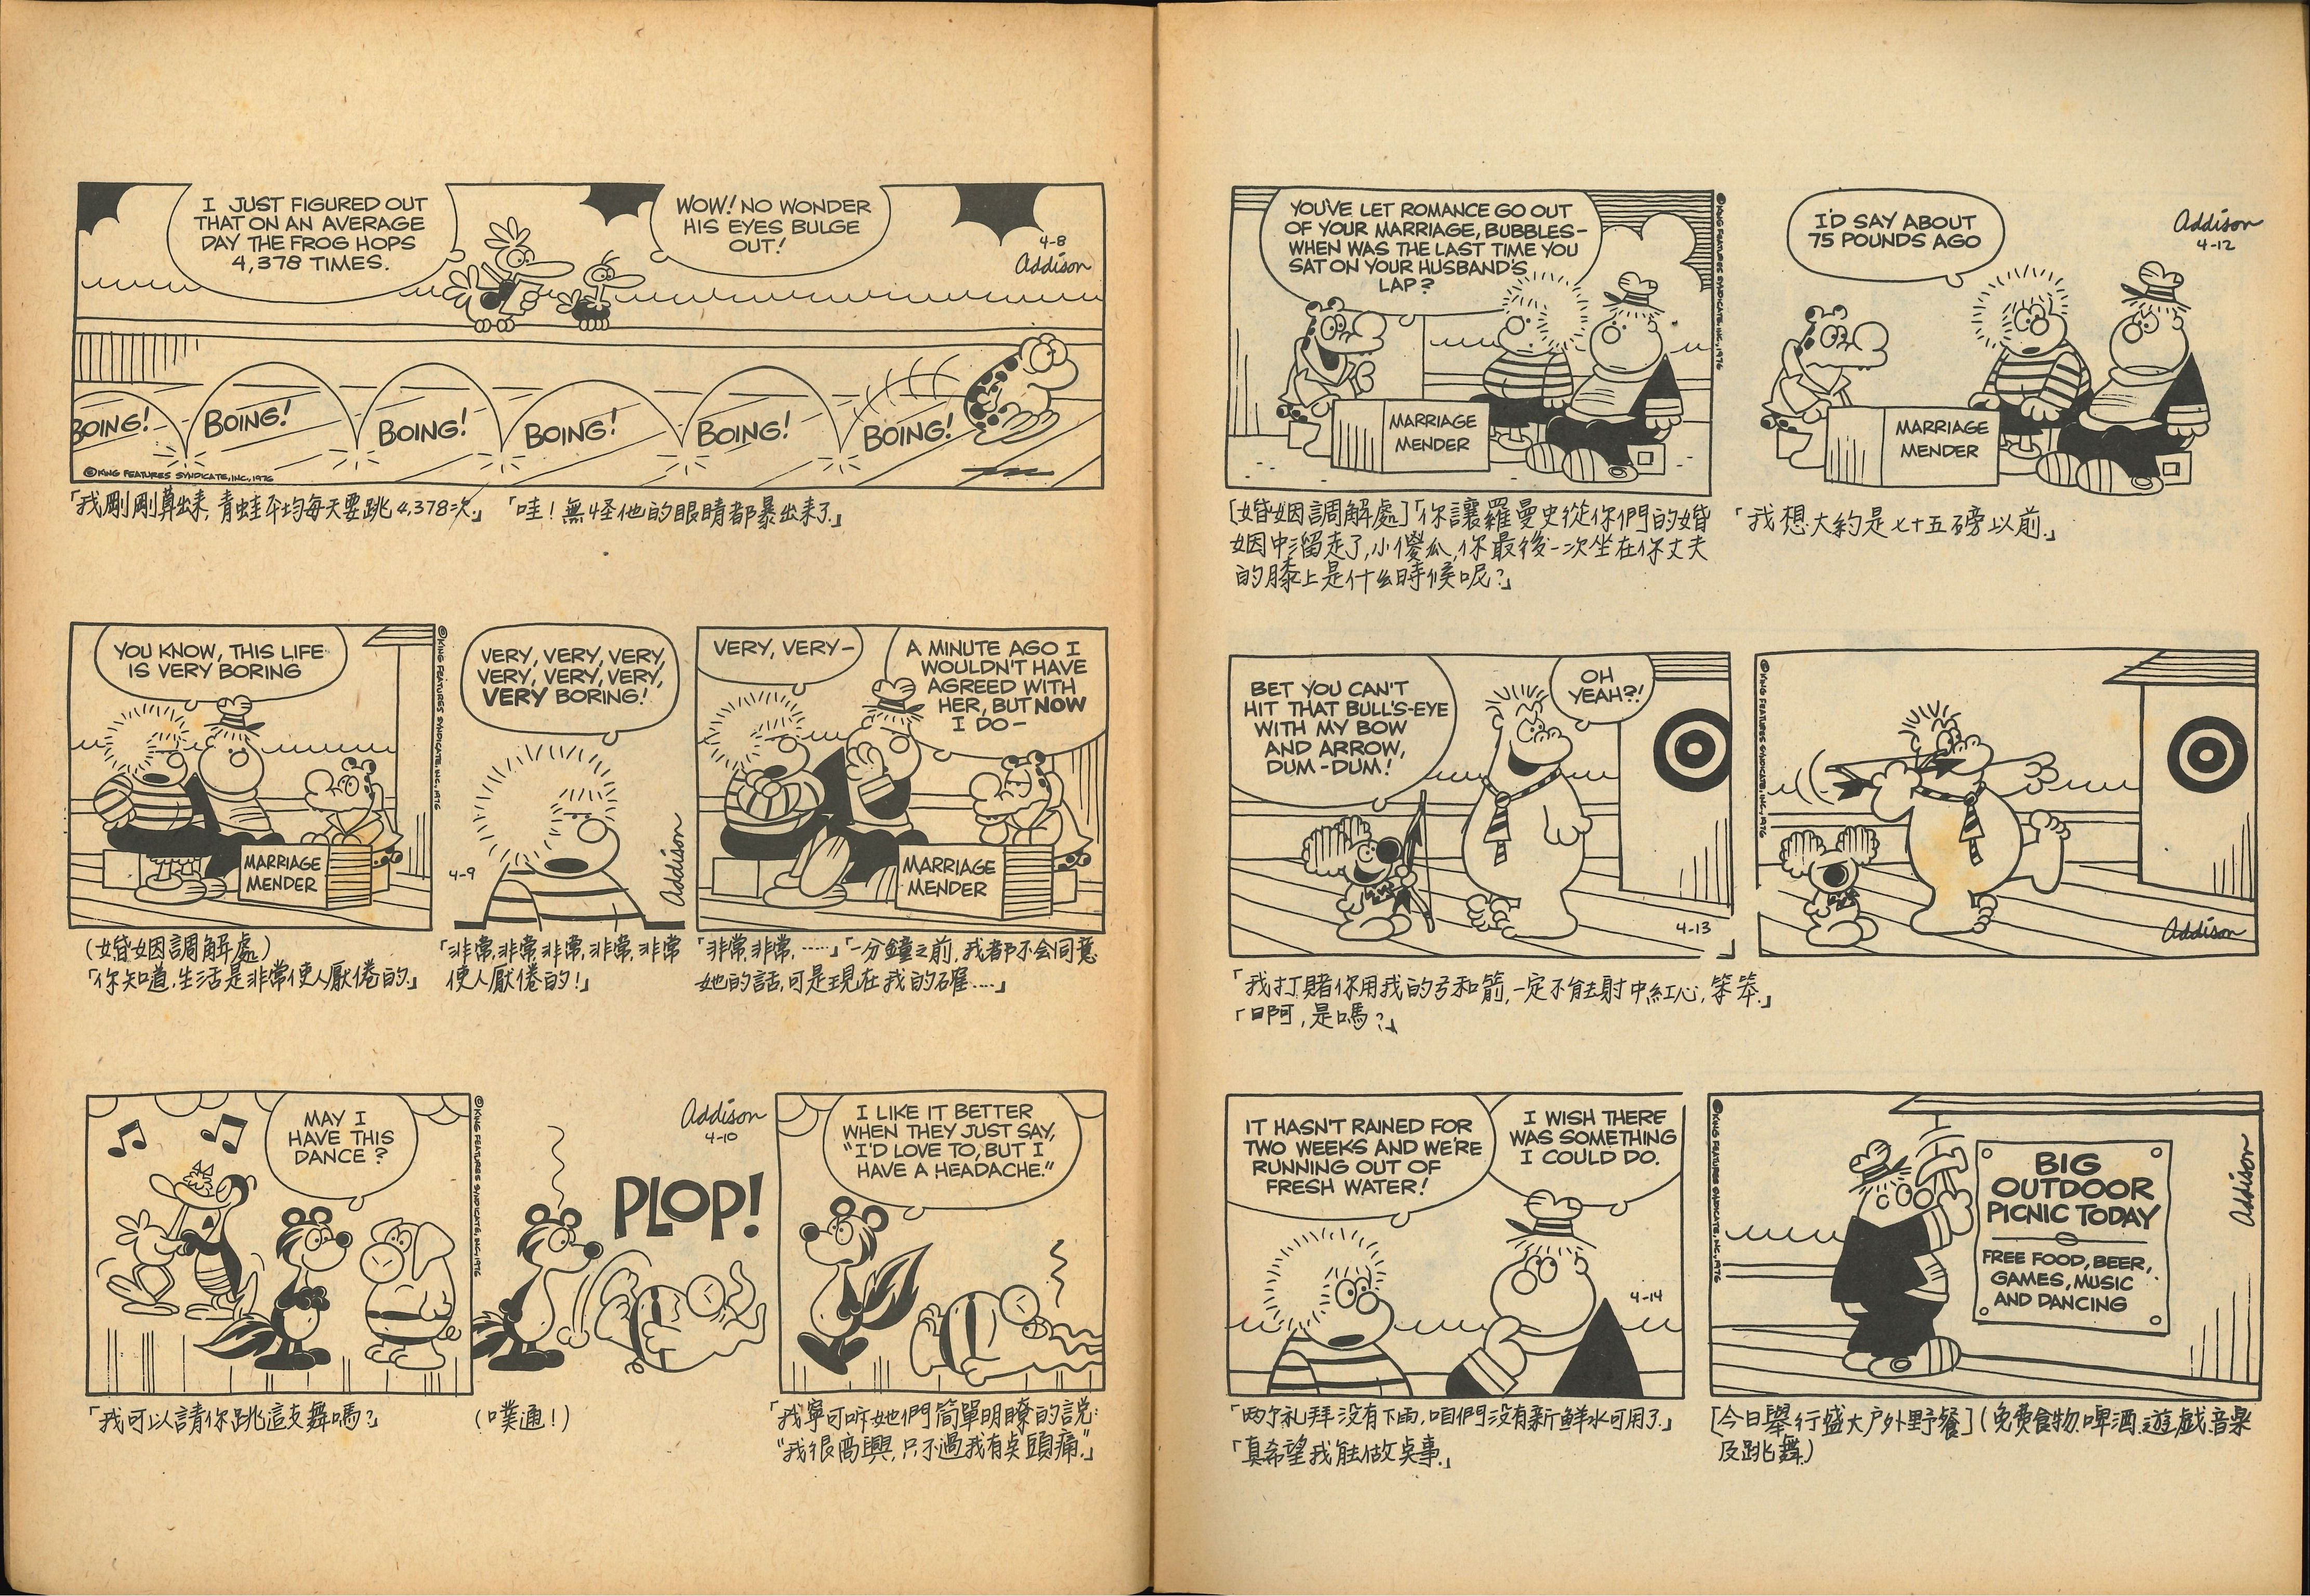 I JUST FIGURED OUT
THAT ON AN AVERAGE
DAY THE FROG HOPS
4,378 TIMES.
WOW! NO WONDER
HIS EYES BULGE
OUT!
4-8
Addison
BOING!
BOING!
BOING!
BOING!
BOING!
BOING!
©KING FEATURES SYNDICATE, INC., 1976
「我剛剛算出來，青蛙平均每天要跳4,378次.」
「哇！無怪他的眼睛都暴出來了.」
YOU KNOW, THIS LIFE
IS VERY BORING
MARRIAGE
MENDER
©KING FEATURES SYNDICATE, INC. 1976
VERY, VERY, VERY,
VERY, VERY, VERY,
VERY BORING!
4-9
Addison
VERY, VERY-
A MINUTE AGO I
WOULDN'T HAVE
AGREED WITH
HER, BUT NOW
I DO-
MARRIAGE
MENDER
(婚姻調解處)
「你知道，生活是非常使人厭倦的.」
「非常,非常,非常,非常,非常
使人厭倦的！」
「非常,非常,……」「一分鐘之前,我都不会同意
她的話,可是現在我的確……」
MAY I
HAVE THIS
DANCE?
©KING FEATURES SYNDICATE, INC., 1976
Addison
4-10
PLOP!
I LIKE IT BETTER
WHEN THEY JUST SAY,
"I'D LOVE TO, BUT I
HAVE A HEADACHE."
「我可以請你跳這支舞嗎？」
(噗通！)
「我寧可听她們簡單明瞭的説：
"我很高興,只不過我有点頭痛."」
YOU'VE LET ROMANCE GO OUT
OF YOUR MARRIAGE, BUBBLES-
WHEN WAS THE LAST TIME YOU
SAT ON YOUR HUSBAND'S
LAP?
MARRIAGE
MENDER
©KING FEATURES SYNDICATE, INC., 1976
I'D SAY ABOUT
75 POUNDS AGO
Addison
4-12
MARRIAGE
MENDER
[婚姻調解處]「你讓羅曼史從你們的婚
姻中溜走了,小傻瓜,你最後一次坐在你丈夫
的膝上是什么時候呢？」
「我想大約是七十五磅以前.」
BET YOU CAN'T
HIT THAT BULL'S-EYE
WITH MY BOW
AND ARROW,
DUM-DUM!
OH
YEAH?!
4-13
©KING FEATURES SYNDICATE, INC., 1976
Addison
「我打賭你用我的弓和箭,一定不能射中紅心,笨笨.」
「啊,是嗎？」
IT HASN'T RAINED FOR
TWO WEEKS AND WE'RE
RUNNING OUT OF
FRESH WATER!
I WISH THERE
WAS SOMETHING
I COULD DO.
4-14
©KING FEATURES SYNDICATE, INC., 1976
BIG
OUTDOOR
PICNIC TODAY
FREE FOOD, BEER,
GAMES, MUSIC
AND DANCING
Addison
「两个礼拜没有下雨,咱們没有新鮮水可用了.」
「真希望我能做点事.」
[今日舉行盛大户外野餐](免费食物.啤酒.遊戲.音樂
及跳舞)